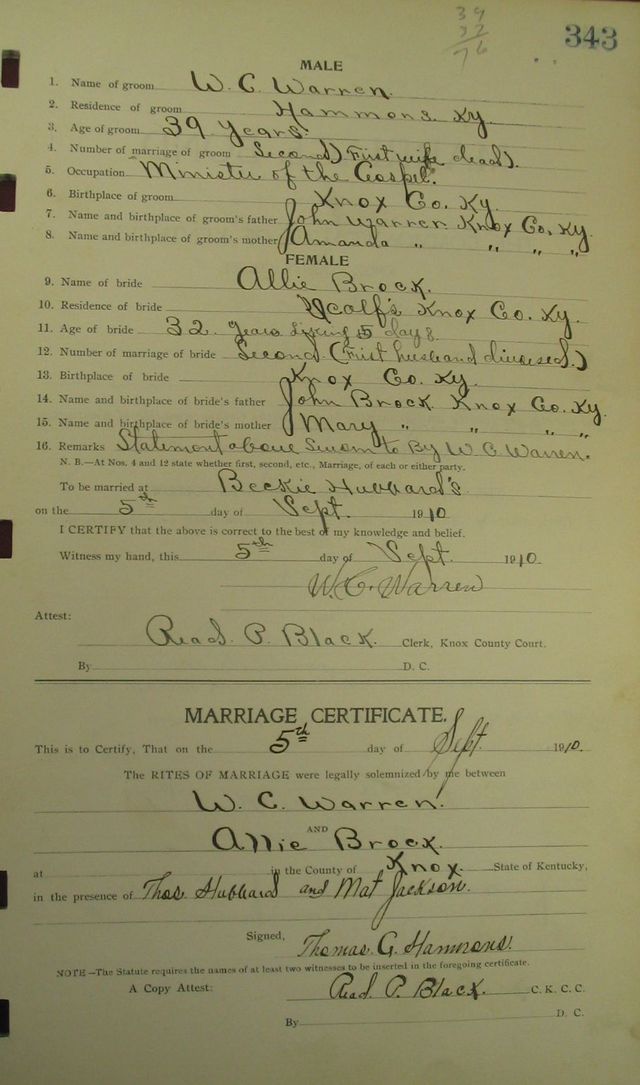 39
32
76
343
MALE
1. Name of groom W. C. Warren.
2. Residence of groom Hammons Ky.
3. Age of groom 39 years.
4. Number of marriage of groom Second) First wife dead).
5. Occupation Minister of the Gospel.
6. Birthplace of groom Knox Co. Ky.
7. Name and birthplace of groom's father John Warren Knox Co. Ky.
8. Name and birthplace of groom's mother Amanda " " " "
FEMALE
9. Name of bride Allie Brock.
10. Residence of bride Knox Co. Ky.
11. Age of bride 32 years 5 days
12. Number of marriage of bride Second (First husband divorced.)
13. Birthplace of bride Knox Co. Ky.
14. Name and birthplace of bride's father John Brock Knox Co. Ky.
15. Name and birthplace of bride's mother Mary " " " "
16. Remarks Statement above Sworn to By W. C. Warren.
N. B.—At Nos. 4 and 12 state whether first, second, etc., Marriage, of each or either party.
To be married at Beckie Hubbard's
on the 5th day of Sept. 1910
I CERTIFY that the above is correct to the best of my knowledge and belief.
Witness my hand, this 5th day of Sept. 1910.
W. C. Warren
Attest:
Read. P. Black. Clerk, Knox County Court.
By D. C.
MARRIAGE CERTIFICATE.
This is to Certify, That on the 5th day of Sept. 1910.
The RITES OF MARRIAGE were legally solemnized by me between
W. C. Warren.
AND
Allie Brock.
at in the County of Knox. State of Kentucky,
in the presence of Thos. Hubbard and Mat Jackson.
Signed, Thomas. G. Hammons.
NOTE—The Statute requires the names of at least two witnesses to be inserted in the foregoing certificate.
A Copy Attest: Read. P. Black. C. K. C. C.
By D. C.